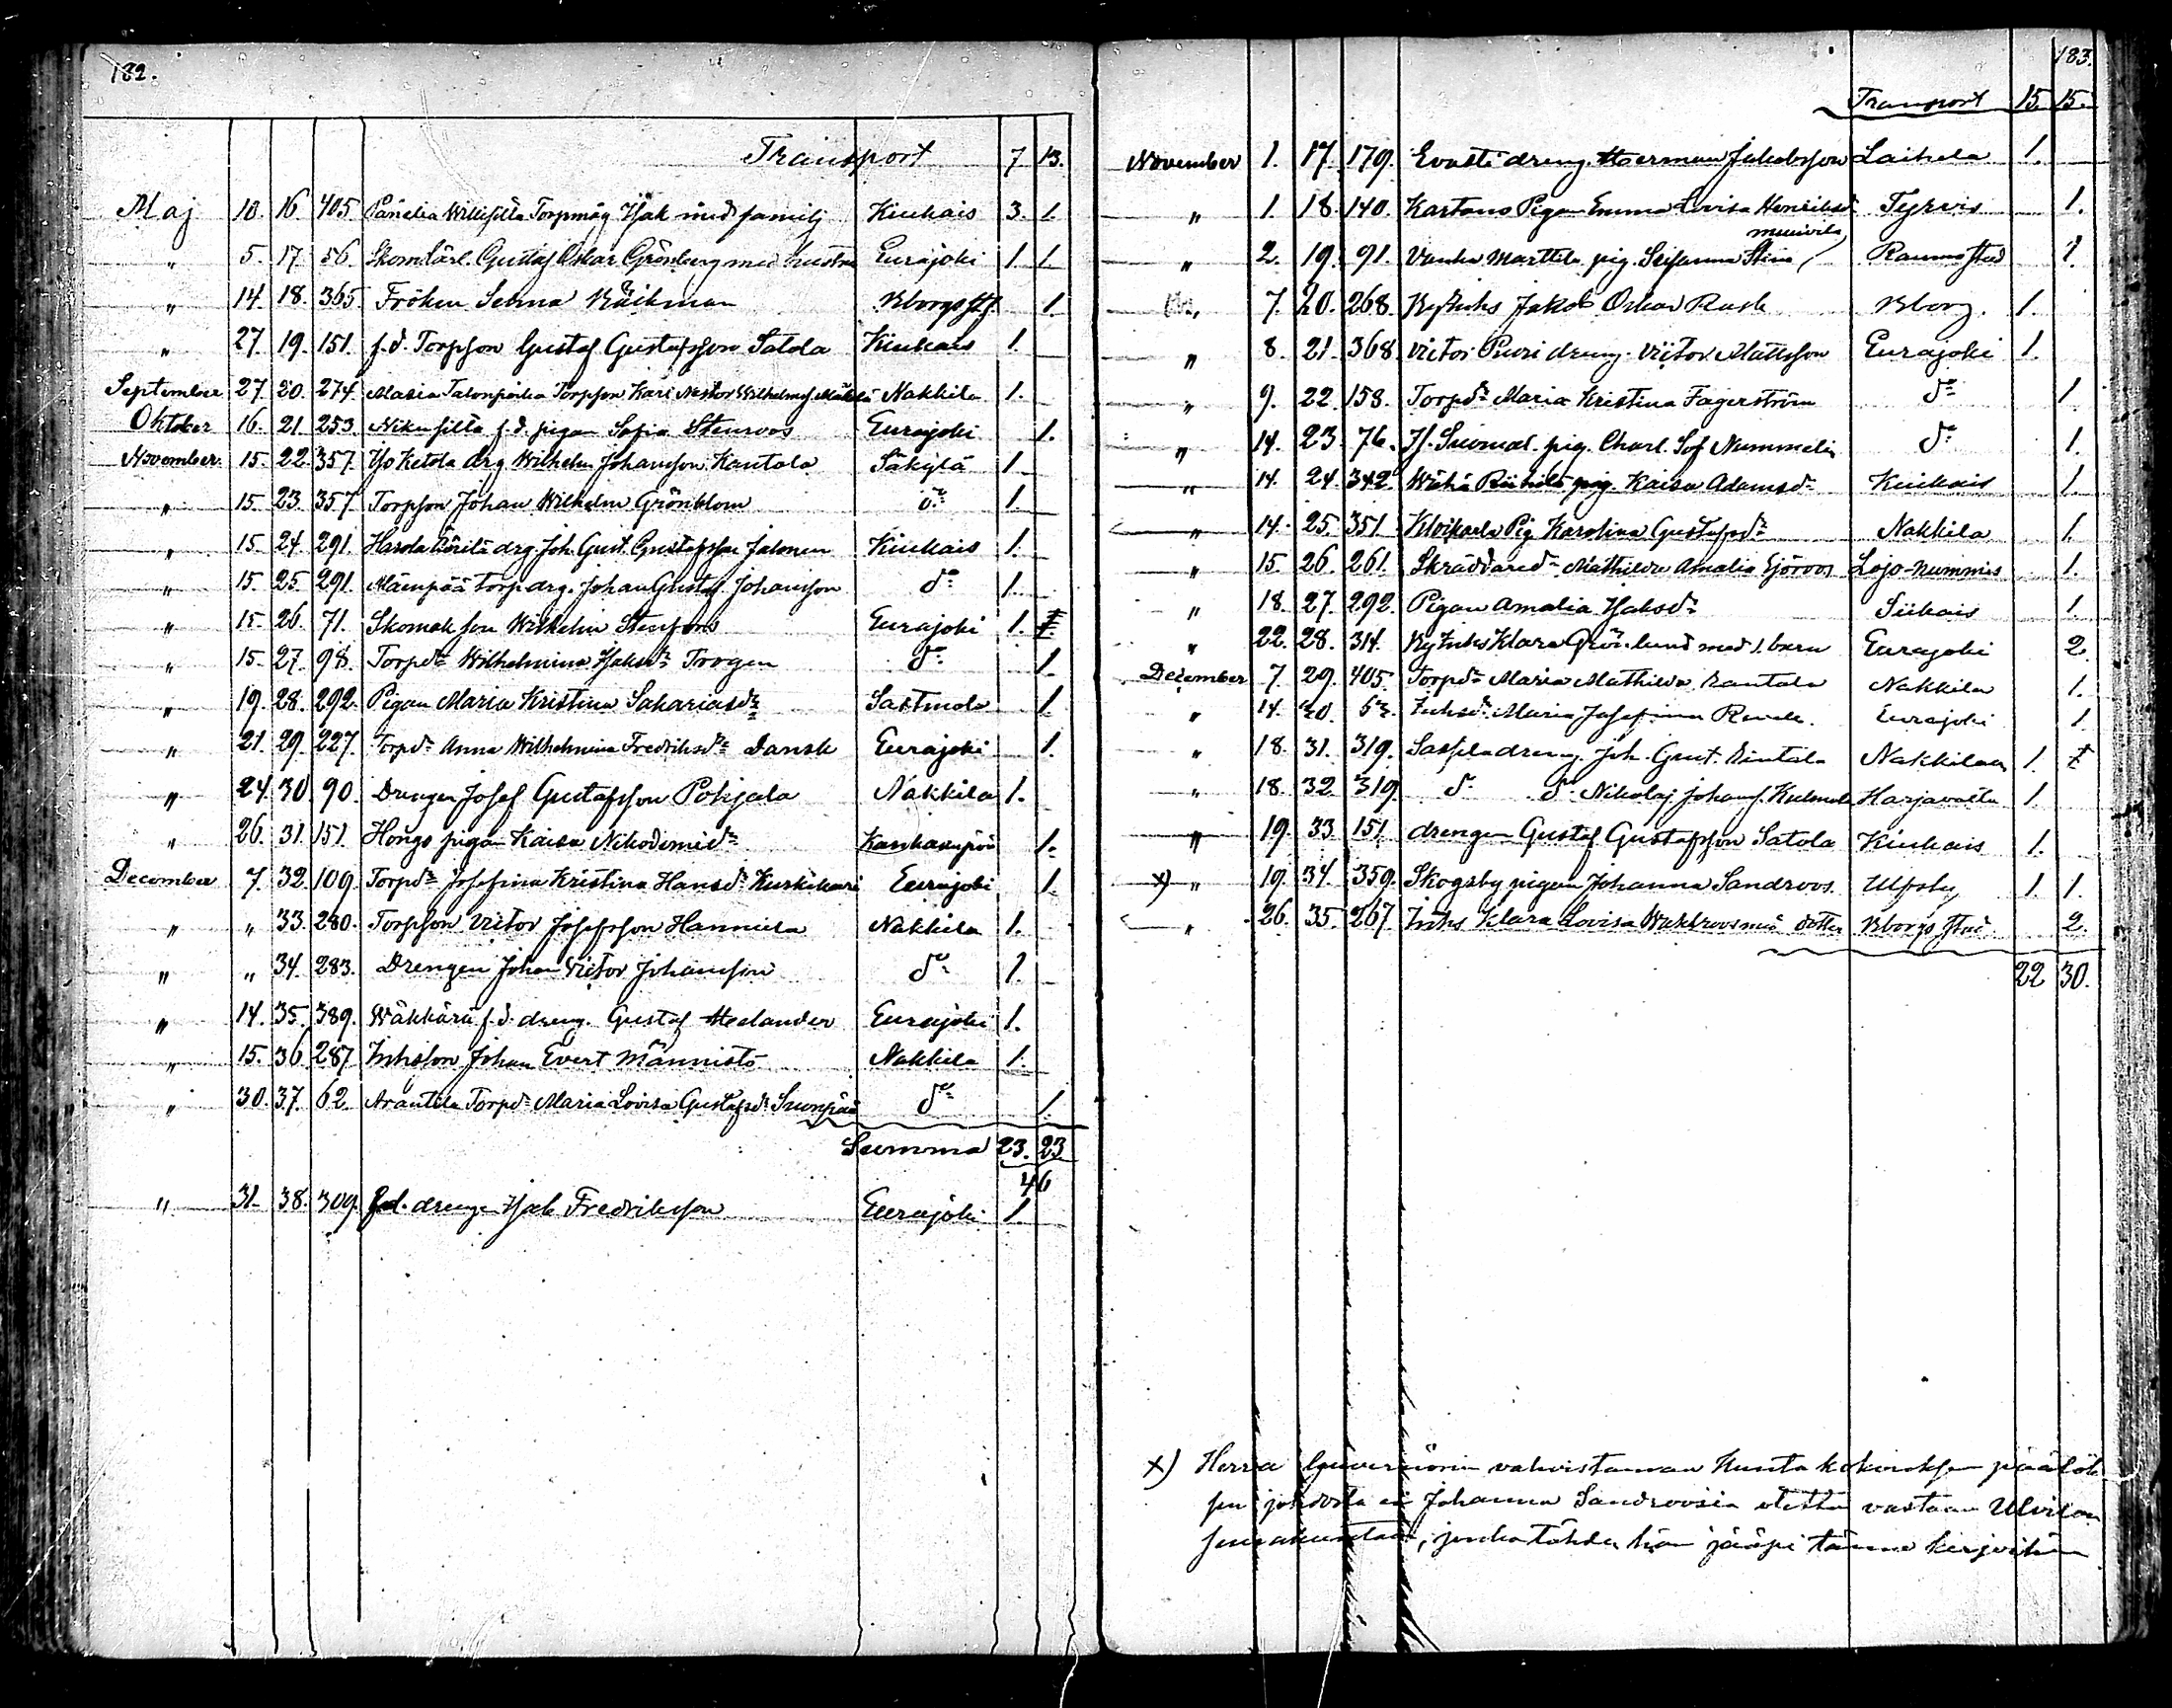 182.
Transport 7 13.
Maj 10. 16. 405. Panelia Torpmåg Isak med familj Kiukais 3. 1.
" 5. 17. 56. Gustaf Oskar Grönberg med hustru Eurajoki 1. 1.
" 14. 18. 365 Fröken Selma Bborgs st. 1.
" 27. 19. 151. f.d. Torpson Gustaf Gustafsson Satola Kiukais 1.
September 27. 20. 274. Torpson Karl Nestor Nakkila 1.
Oktober 16. 21. 253. f.d. pigan Sofia Stenroos Eurajoki 1.
November 15. 22. 357. Iso Ketola drg Wilhelm Johansson Kantola Säkylä 1.
" 15. 23. 357. Torpson Johan Wilhelm Grönblom do 1.
" 15. 24. 291. Harola drg. Joh. Gust. Gustafsson Jalonen Kiukais 1.
" 15. 25. 291. Mäenpää Torp drg. Johan Gustaf Johansson do 1.
" 15. 26. 71. Skomak son Wilhelm Stenfors Eurajoki 1.
" 15. 27. 98. Torpdr Wilhelmina Isaksdr Trogen do 1.
" 19. 28. 292. Pigan Maria Kristina Sakariasdr Sastmola 1.
" 21. 29. 227. Torpdr Anna Wilhelmina Fredriksdr Dansk Eurajoki 1.
" 24. 30. 90. Drengen Josef Gustafsson Pohjala Nakkila 1.
" 26. 31. 151. Hongo pigan Kaisa Nikodemidr Kankaanpää 1.
December 7. 32. 109. Torpdr Josefina Kristina Hansdr Kurkikari Eurajoki 1.
" " 33. 280. Torpson Victor Josefsson Hannula Nakkila 1.
" " 34. 283. Drengen Johan Victor Johansson do 1.
" 14. 35. 389. Wäkkärä f.d. dreng. Gustaf Helander Eurajoki 1.
" 15. 36. 287 Inhsson Johan Evert Männistö Nakkila 1.
" 30. 37. 62. Arantila Torpdr Maria Lovisa Gustafsdr Suonpää do 1.
Summa 23. 23
46
" 31. 38. 309. f.d. drengen Isak Fredriksson Eurajoki 1.
183.
Transport 15. 15.
November 1. 17. 179. Evasti dreng. Herman Jakobsson Laihela 1.
" 1. 18. 140. Kartano Pigan Emma Lovisa Henriksdr Tyrvis 1.
" 2. 19. 91. Vanha Marttila pig. Stina Raumo stad 1.
" 7. 20. 268. Jakob Oskar Rask Bborg. 1.
" 8. 21. 368. Victor Puori dreng. Victor Mattsson Eurajoki 1.
" 9. 22. 158. Torpdr Maria Kristina Fagerström do 1.
" 14. 23. 76. pig. Charl. Sof Nummelin do 1.
" 14. 24. 342. Wähä Riihilä pig. Kaisa Adamsdr Kiukais 1.
" 14. 25. 351. Pig Karolina Gustafsdr Nakkila 1.
" 15. 26. 261. Skräddaredr Mathilda Amalia Sjöroos Lojo-Nummis 1.
" 18. 27. 292. Pigan Amalia Isaksdr Siikais 1.
" 22. 28. 314. Klara Grönlund med 1. barn Eurajoki 2.
December 7. 29. 405. Torpdr Maria Mathilda Rantala Nakkila 1.
" 14. 30. Inhsdr Maria Josefina Eurajoki 1.
" 18. 31. 319. dreng. Joh. Gust. Rintala Nakkilaa 1.
" 18. 32. 319. do do Nikolaj Johans. Harjavalta 1.
" 19. 33 151 drengen Gustaf Gustafsson Satola Kiukais 1.
x) " 19. 34. 359. Skogsby pigan Johanna Sandroos. Ulfsby 1. 1.
" 26. 35. 267. Inhs Klara Lovisa dotter Bborgs stad 2.
22 30.
x) Herra Guvernöörin vahvistaman Kunta kokouksen päätök-
sen johdosta ei Johanna Sandroosia oteta vastaan Ulvilan
seurakuntaan, jonka tähden hän jääpi tänne kirjoihin